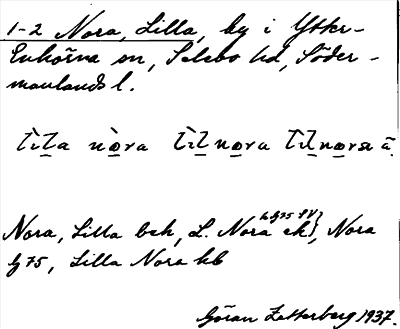 1-2 Nora, Lilla, by i Ytter-
Enhörna sn, Selebo hd, Söder-
manlands l.
lìl̠a nò̠ra lìl̠no̠ra lìl̠no̠ra ä.
Nora, Lilla bek, L. Nora ek, Nora
by 75, Lilla Nora kb
Göran Zetterberg 1937.